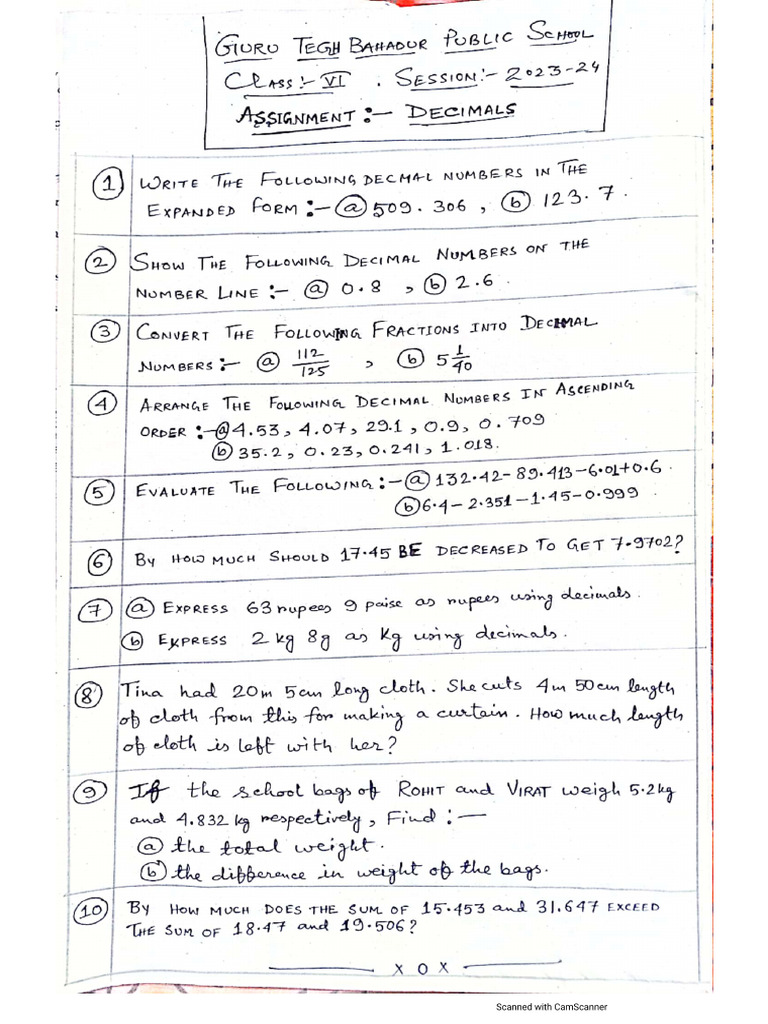 GURU TEGH BAHADUR PUBLIC SCHOOL
CLASS:- VI . SESSION:- 2023-24
ASSIGNMENT:- DECIMALS
① WRITE THE FOLLOWING DECMAL NUMBERS IN THE
EXPANDED FORM:- ⓐ 509.306, ⓑ 123.7.
② SHOW THE FOLLOWING DECIMAL NUMBERS ON THE
NUMBER LINE:- ⓐ 0.8, ⓑ 2.6.
③ CONVERT THE FOLLOWING FRACTIONS INTO DECIMAL
NUMBERS:- ⓐ 112/125, ⓑ 5 1/40
④ ARRANGE THE FOLLOWING DECIMAL NUMBERS IN ASCENDING
ORDER:- ⓐ 4.53, 4.07, 29.1, 0.9, 0.709
ⓑ 35.2, 0.23, 0.241, 1.018.
⑤ EVALUATE THE FOLLOWING:- ⓐ 132.42-89.413-6.01+0.6.
ⓑ 6.4-2.351-1.45-0.999
⑥ BY HOW MUCH SHOULD 17.45 BE DECREASED TO GET 7.9702?
⑦ ⓐ EXPRESS 63 rupees 9 paise as rupees using decimals.
ⓑ EXPRESS 2 kg 8g as Kg using decimals.
⑧ Tina had 20m 5cm long cloth. She cuts 4m 50cm length
of cloth from this for making a curtain. How much length
of cloth is left with her?
⑨ If the school bags of ROHIT and VIRAT weigh 5.2kg
and 4.832 kg respectively, Find:-
ⓐ the total weight.
ⓑ the difference in weight of the bags.
⑩ BY HOW MUCH DOES THE SUM OF 15.453 and 31.647 EXCEED
THE SUM OF 18.47 and 19.506?
x o x
Scanned with CamScanner